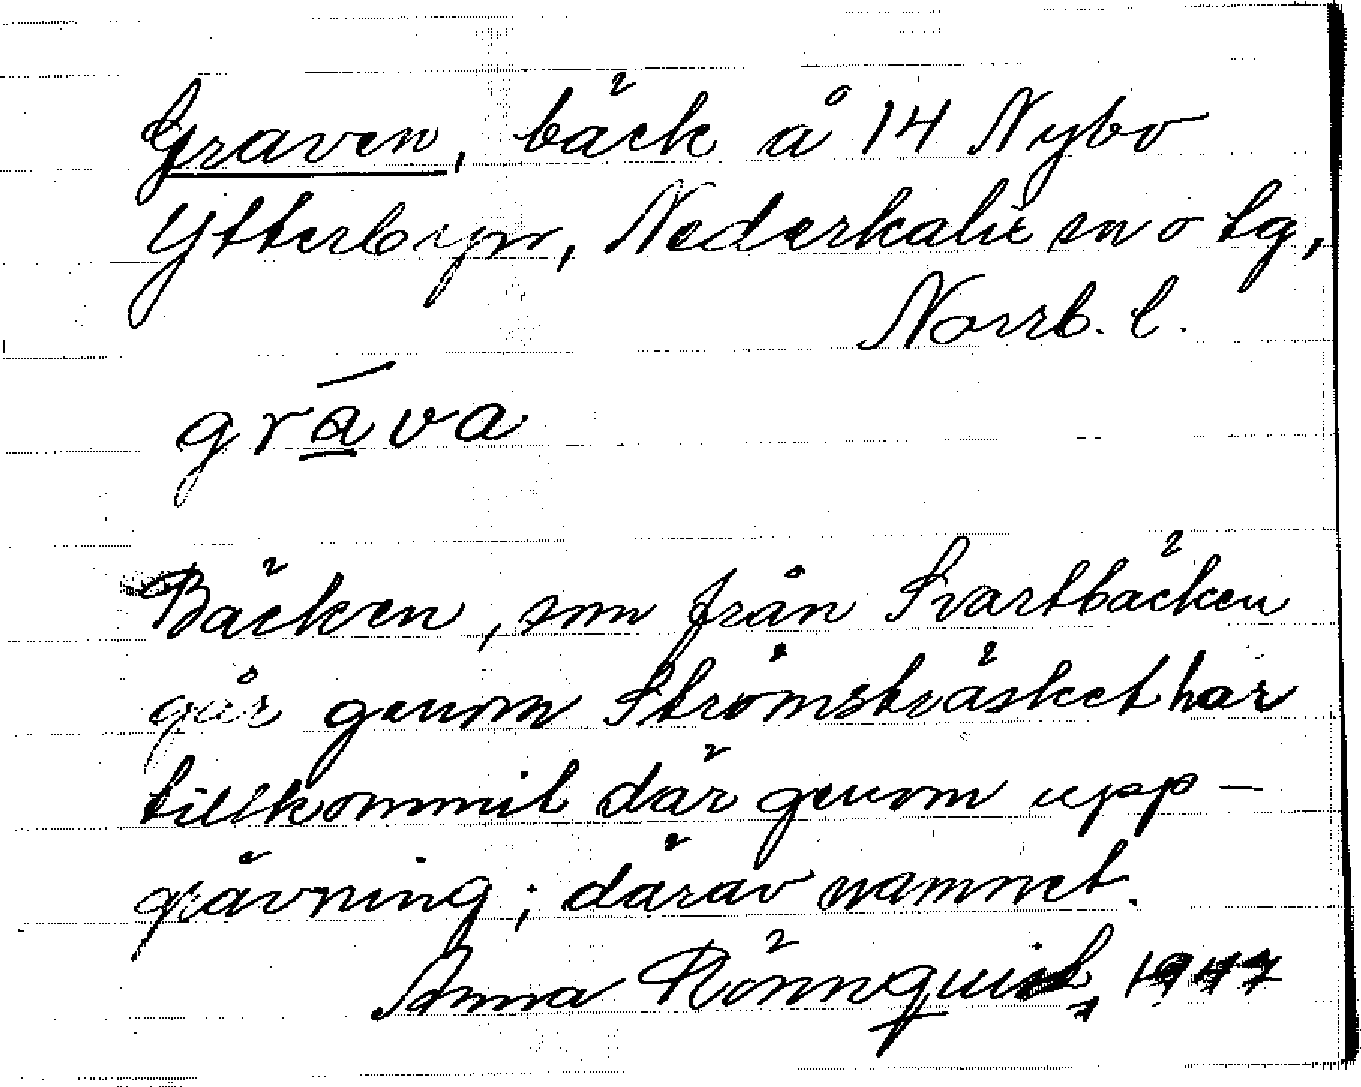 Graven, bäck å 14 Nybo
Ytterbyn, Nederkalix sn o tg,
Norrb. l.
gráva
Bäcken, som från Svartbäcken
går genom Strömsträsket har
tillkommit där genom upp-
grävning; därav namnet.
Anna Rönnquist, 1947